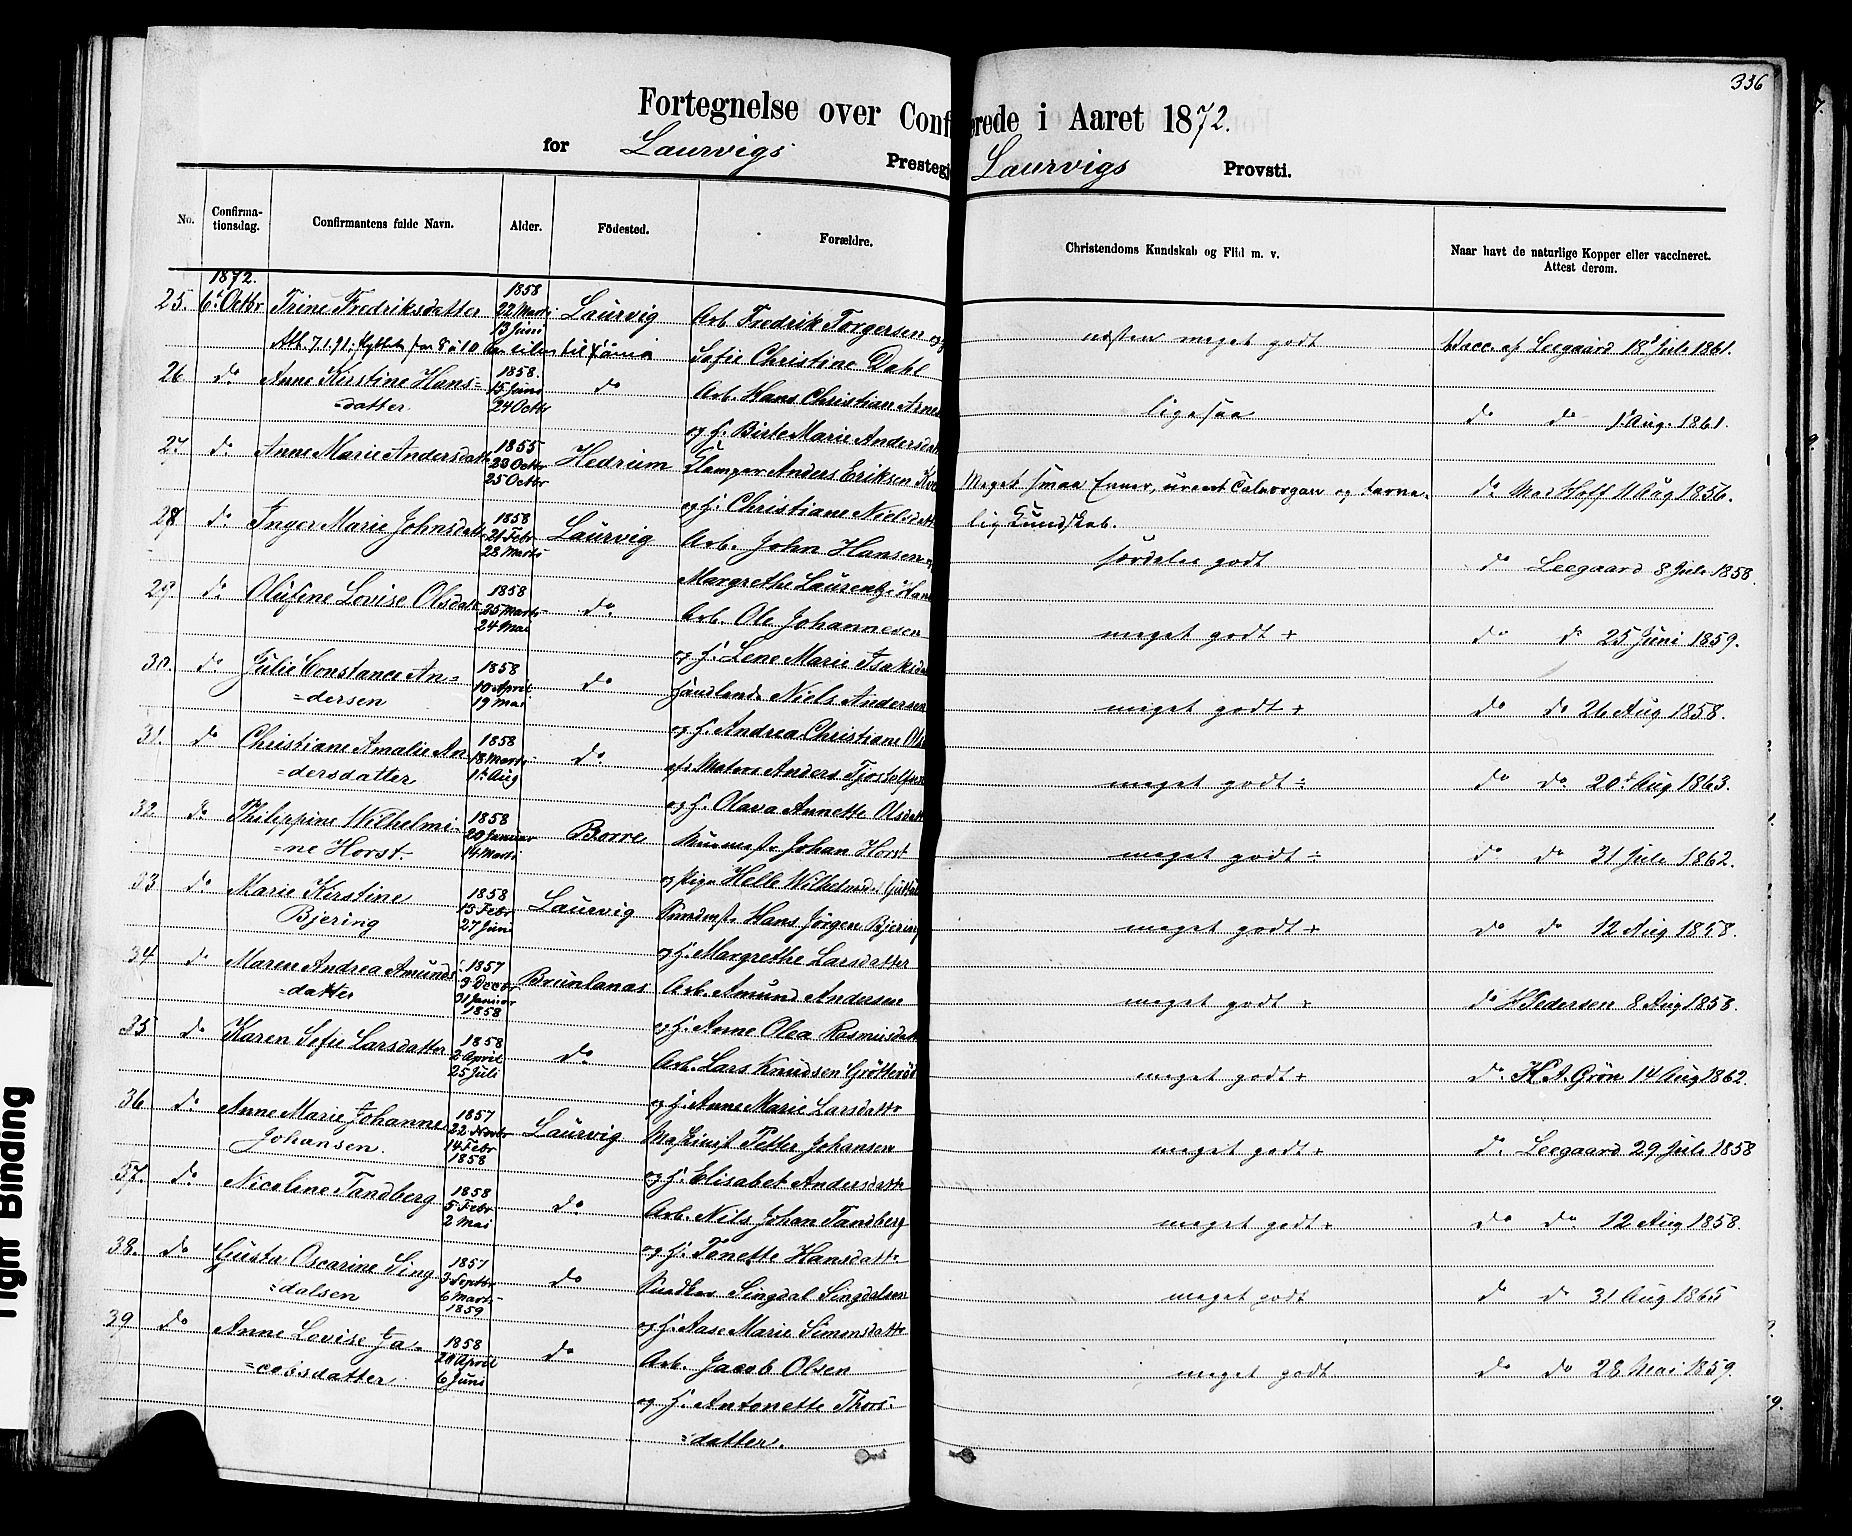 336
Fortegnelse over Conf erede i Aaret 1872.
for Laurvigs Prestegj Laurvigs Provsti.
No. Confirma- tionsdag. Confirmantens fulde Navn. Alder. Födested. Forældre. Christendoms Kundskab og Flid m. v. Naar havt de naturlige Kopper eller vaccineret. Attest derom.
1872. 1858
25. 6t Octbr Trine Fredriksdatter 22 Marts Laurvig Arb. Fredrik Torgersen og næsten meget godt Vacc. af Leegaard 18d Juli 1861.
13 Juni
Att. 7.1.91: til Sofie Christine Dahl
26. do Anne Kerstine Hans= 1858. do Arb. Hans Christian ligesaa do do 1 Aug. 1861.
15 Juni
=datter. 24 Octbr og H. Birte Marie Andersdatt
27. do Anne Marie Andersdatt 1855 Hedrum Anders Eriksen Meget smaa Evner, urent Taleorgan og tarve= do Hoff 11 Aug 1856.
23 Octbr
25 Octbr og H. Christiane Nielsdatt lig Kundskab.
28. do Inger Marie Johnsdatt 1858 Laurvig Arb. John Hansen særdeles godt do Leegaard 8 Juli 1858.
21 Febr
28 Marts Margrethe Laurentze Han
29. do Olufine Lovise Olsdatt 1858 do Arb. Ole Johannesen meget godt + do do 25 Juni 1859.
25 Marts
24 Mai og H. Lene Marie Isaksda
30. do Julie Constance An= 1858 do Handlende Niels Andersen meget godt + do do 26 Aug 1858.
10 April
=dersen 19 Mai og H. Andrea Christiane Ols
31. do Christiane Amalie An 1858 do Matros Anders Tjostolfsen meget godt ÷ do do 20d Aug 1863.
18 Marts
=dersdatter 1t Aug og H. Olava Annette Olsdatt
32 do Philippine Wilhelmi= 1858 Borre Muurmest. Johan Horst meget godt ÷ do do 31 Juli 1862.
20 Januar
=ne Horst. 14 Marts og Pige Helle Wilhelmsd.
33 do Marie Kerstine 1858 Laurvig Hans Jørgen Bjering meget godt + do do 12 Aug 1858.
13 Febr
Bjering 27 Juni og H. Margrethe Larsdatter
34 do Maren Andrea Amunds 1857 Brunlanas Arb. Amund Andersen meget godt + do Pedersen 8 Aug 1858.
3 Decbr
=datter 31 Januar og H. Anne Olea Rasmusdatt
1858
35 do Karen Sofie Larsdatter 1858 do Arb. Lars Knudsen Grötterö meget godt + do H. A. Grön 14 Aug 1862.
2 April
25 Juli og H. Anne Marie Larsdattr
36. do Anne Marie Johanne 1857 Laurvig Maskinist Petter Johansen meget godt + do Leegaard 29 Juli 1858
22 Novbr
Johansen. 14 Febr og H. Elisabet Andersdattr
1858
37. do Nicoline Tandberg 1858 do Arb. Nils Johan Tandberg meget godt + do do 12 Aug 1858.
5 Febr
2 Mai og H. Tonette Hansdattr
38. do Gusta Oscarine Sing 1857 do Snedker Singdal Singdalsen meget godt do do 31 Aug 1865
3 Septbr
=dalsen 6 Marts og H. Aase Marie Simonsdattr
1859
39 do Anne Lovise Ja= 1858 do Arb. Jacob Olsen meget godt do do 28 Mai 1859.
20 April
=cobsdatter 6 Juni og H. Antonette Thors=
=datter.
Tight Binding